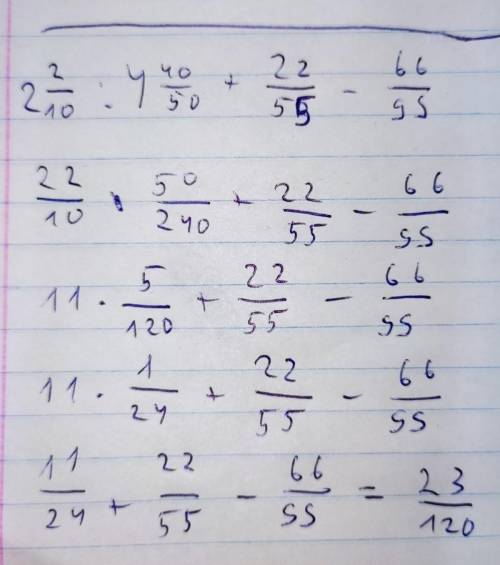 2 2/10 : 4 40/50 + 22/55 - 66/99
22/10 · 50/240 + 22/55 - 66/99
11 · 5/120 + 22/55 - 66/99
11 · 1/24 + 22/55 - 66/99
11/24 + 22/55 - 66/99 = 23/120